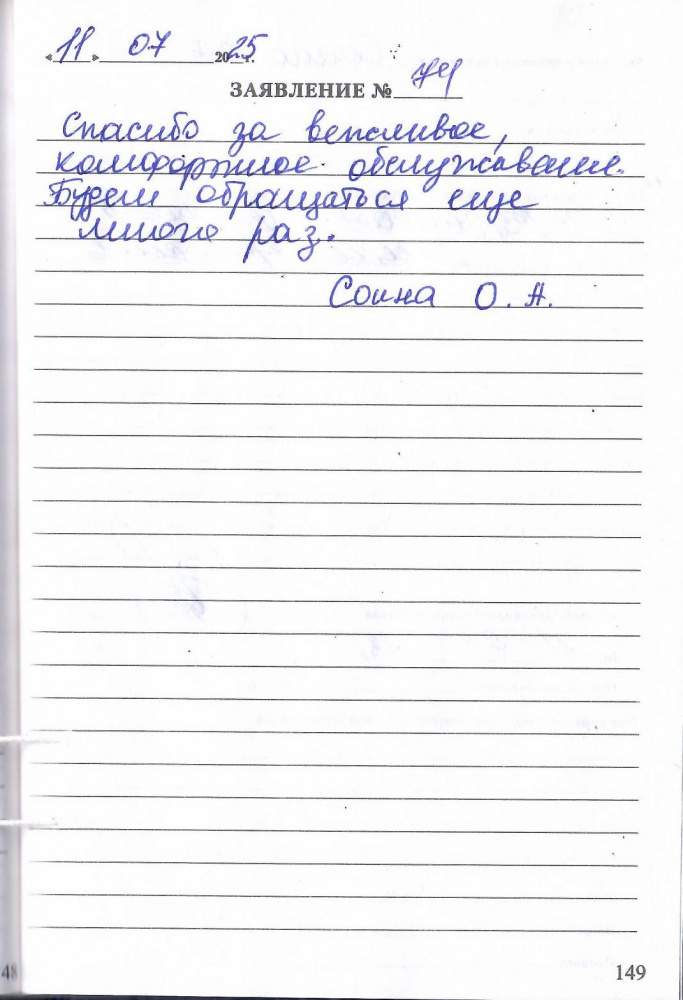 «11» 07 2025 г.
ЗАЯВЛЕНИЕ № 74
Спасибо за вежливое,
комфортное обслуживание.
Будем обращаться еще
много раз.
Соина О. А.
48
149